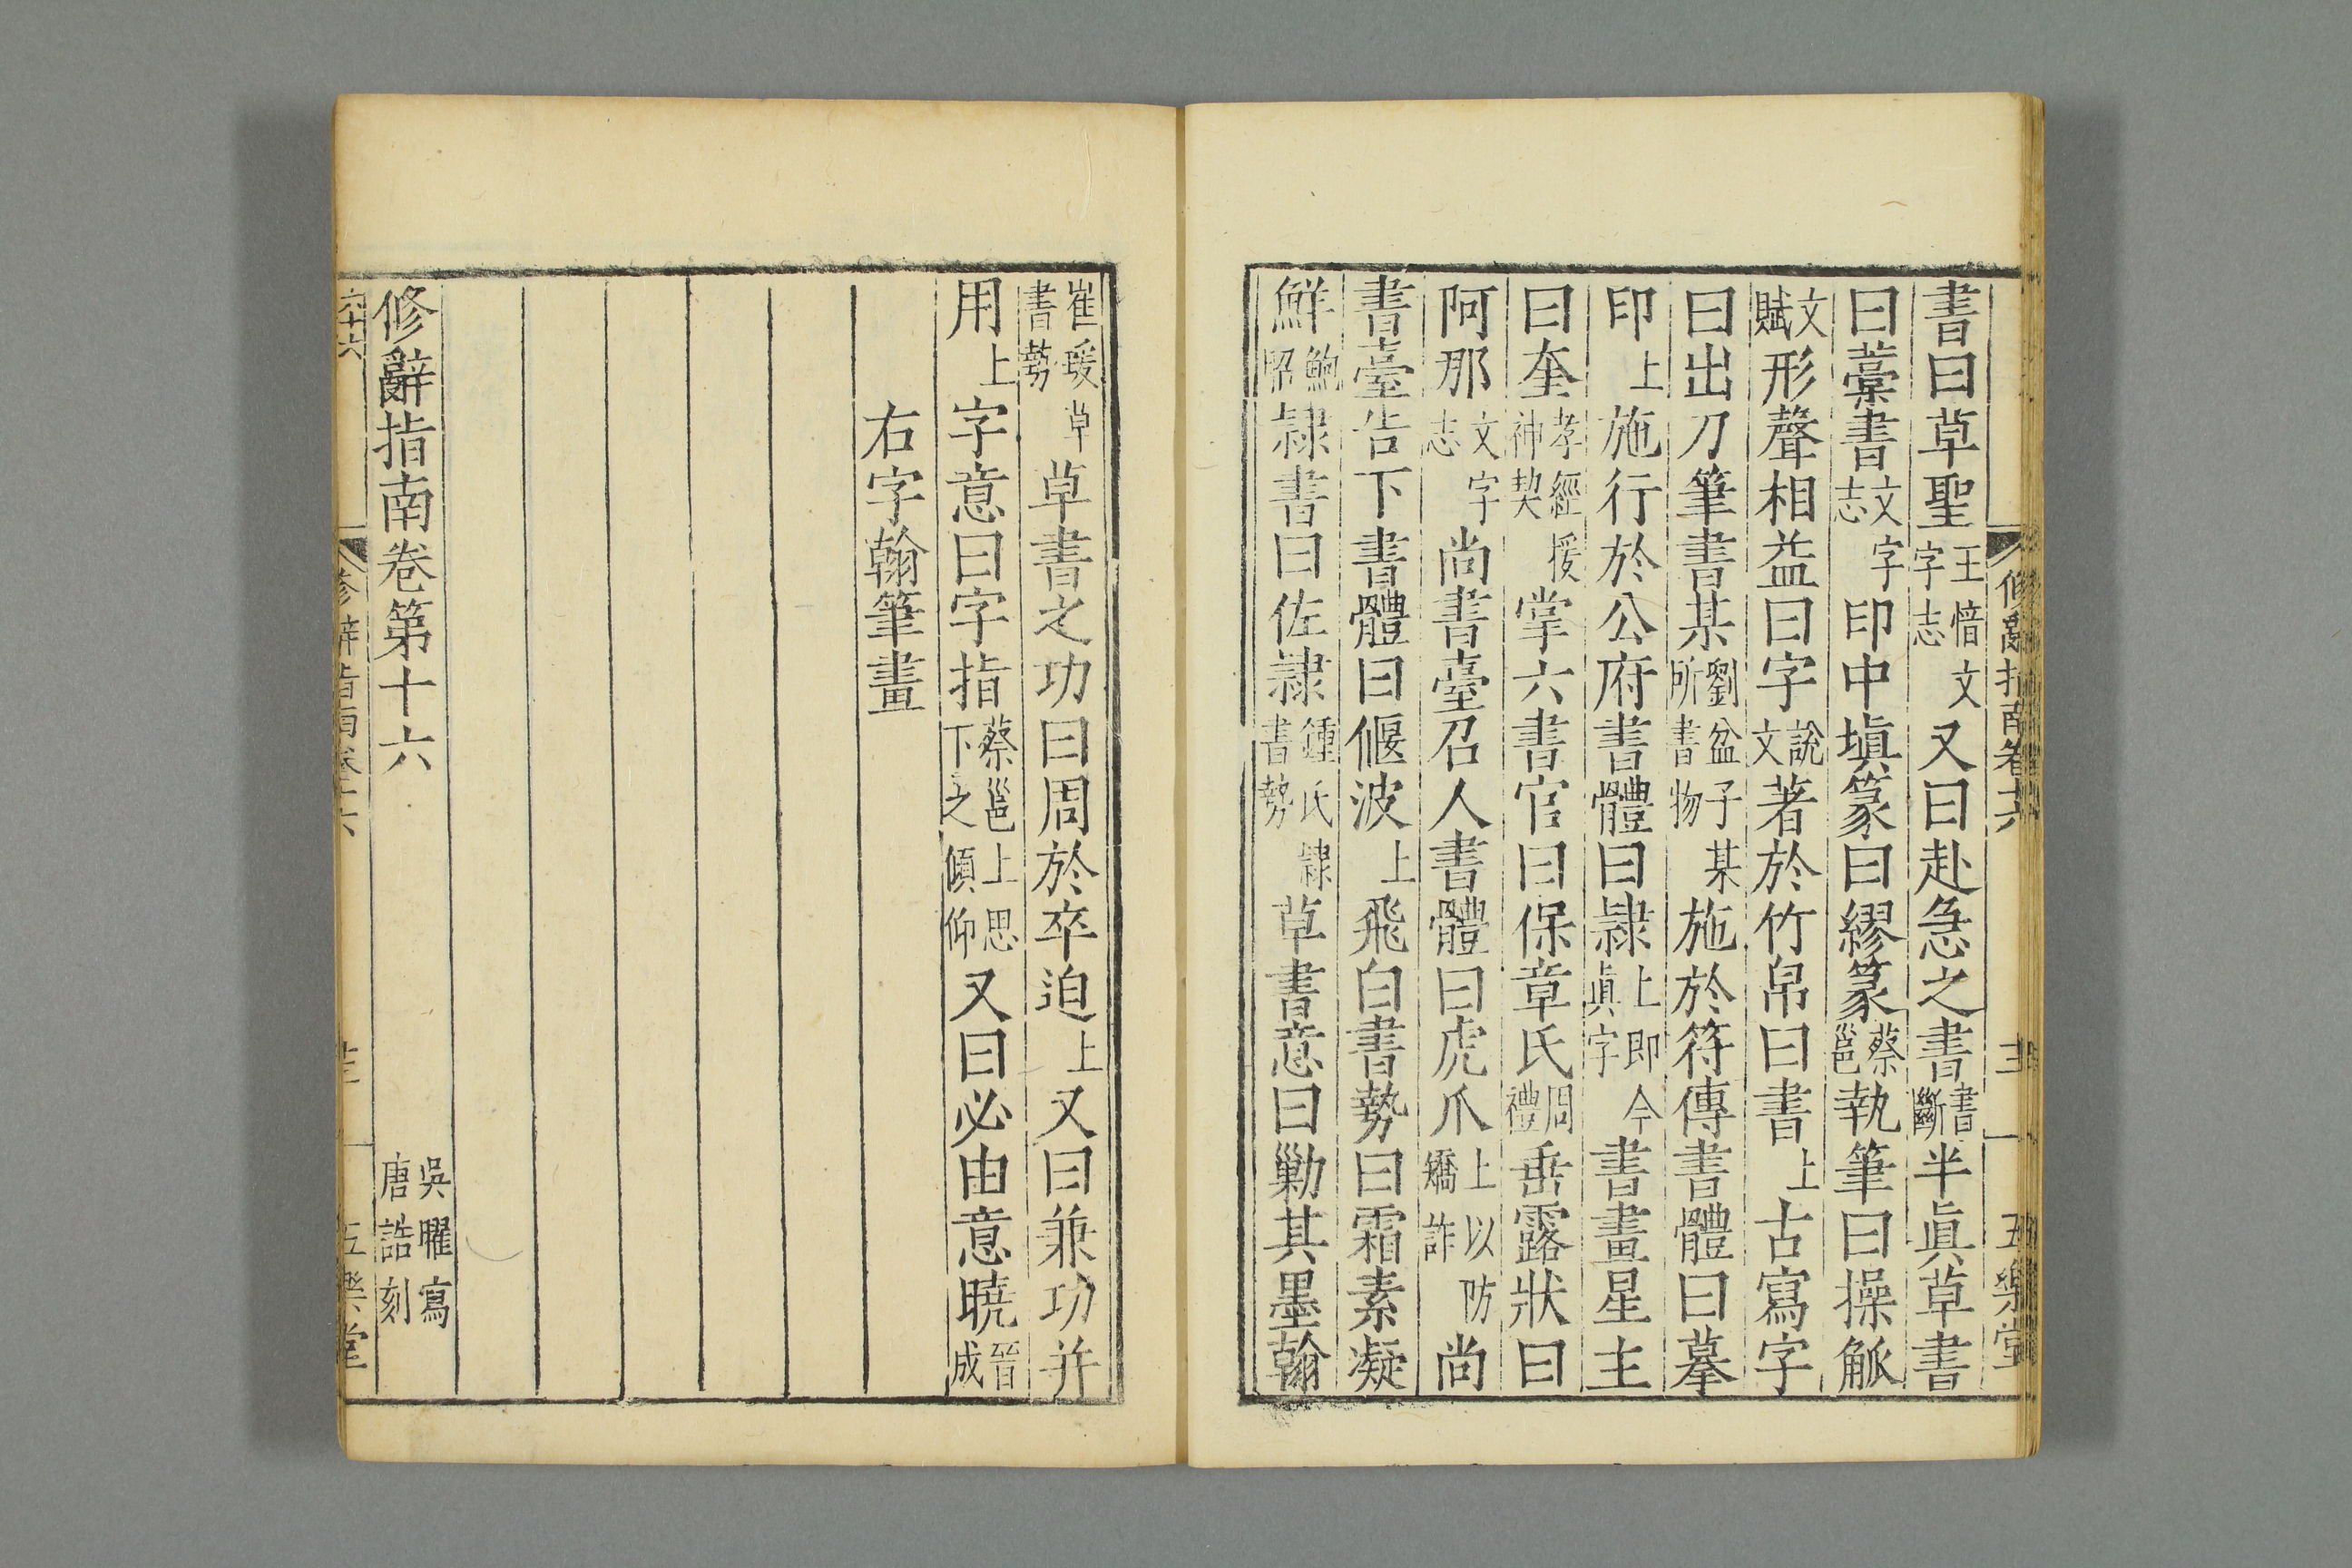 書曰草聖王愔文字志又曰赴急之書書斷半眞草書
曰藁書文字志印中塡篆曰繆篆蔡邕執筆曰操觚
文賦形聲相益曰字說文著於竹帛曰書上古寫字
曰出刀筆書某劉盆子某所書物施於符傳書體曰摹
印上施行於公府書體曰隷上即今眞字書畫星主
曰奎孝經援神契掌六書官曰保章氏周禮垂露狀曰
阿那文字志尚書臺召人書體曰虎爪上以防矯詐尚
書臺告下書體曰偃波上飛白書勢曰霜素凝
鮮鮑昭隷書曰佐隷鍾氏隷書勢草書意曰勦其墨翰
崔瑗草書勢草書之功曰周於卒迫上又曰兼功并
用上字意曰字指蔡邕上思下之傾仰又曰必由意曉晉成
右字翰筆畫
修辭指南卷第十六
吳曜寫
唐誥刻